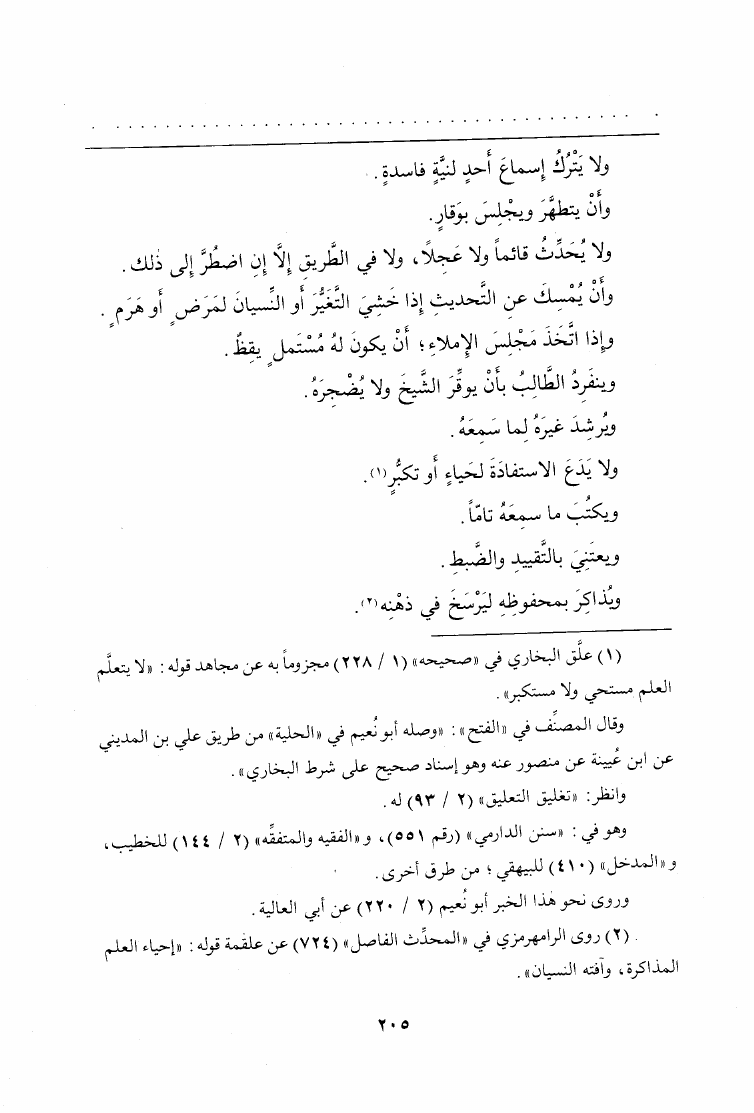 ولا يَتْرُكُ إسماعَ أَحدٍ لنيَّةٍ فاسدةٍ.
وأَنْ يتطهَّرَ ويجْلِسَ بوَقارٍ.
ولا يُحَدِّثُ قائماً ولا عَجِلاً، ولا في الطَّريقِ إِلَّا إِنِ اضطُرَّ إِلى ذلك.
وأَنْ يُمْسِكَ عنِ التَّحديثِ إِذا خَشِيَ التَّغَيُّرَ أَو النِّسيانَ لمَرَضٍ أَو هَرَمٍ.
وإِذا اتَّخَذَ مَجْلِسَ الإِملاءِ؛ أَنْ يكونَ لهُ مُسْتَملٍ يقِظٌ.
وينفَرِدُ الطَّالِبُ بأَنْ يوقِّرَ الشَّيخَ ولا يُضْجِرَهُ.
ويُرشِدَ غيرَهُ لِما سَمِعَهُ.
ولا يَدَعَ الاستفادَةَ لحَياءٍ أَو تكبُّرٍ(١).
ويكتُبَ ما سمِعَهُ تامّاً.
ويعتَنِيَ بالتَّقييدِ والضَّبطِ.
ويُذاكِرَ بمحفوظِهِ ليَرْسَخَ في ذهْنِه(٢).
(١) علَّق البخاري في «صحيحه» (١ / ٢٢٨) مجزوماً به عن مجاهد قوله: «لا يتعلَّم
العلم مستحي ولا مستكبر».
وقال المصنِّف في «الفتح»: «وصله أبو نُعيم في «الحلية» من طريق علي بن المديني
عن ابن عُيينة عن منصور عنه وهو إسناد صحيح على شرط البخاري».
وانظر: «تغليق التعليق» (٢ / ٩٣) له.
وهو في: «سنن الدارمي» (رقم ٥٥١)، و«الفقيه والمتفقِّه» (٢ / ١٤٤) للخطيب،
و«المدخل» (٤١٠) للبيهقي؛ من طرق أخرى.
وروى نحو هٰذا الخبر أبو نُعيم (٢ / ٢٢٠) عن أبي العالية.
(٢) روى الرامهرمزي في «المحدِّث الفاصل» (٧٢٤) عن علقمة قوله: «إحياء العلم
المذاكرة، وآفته النسيان».
٢٠٥